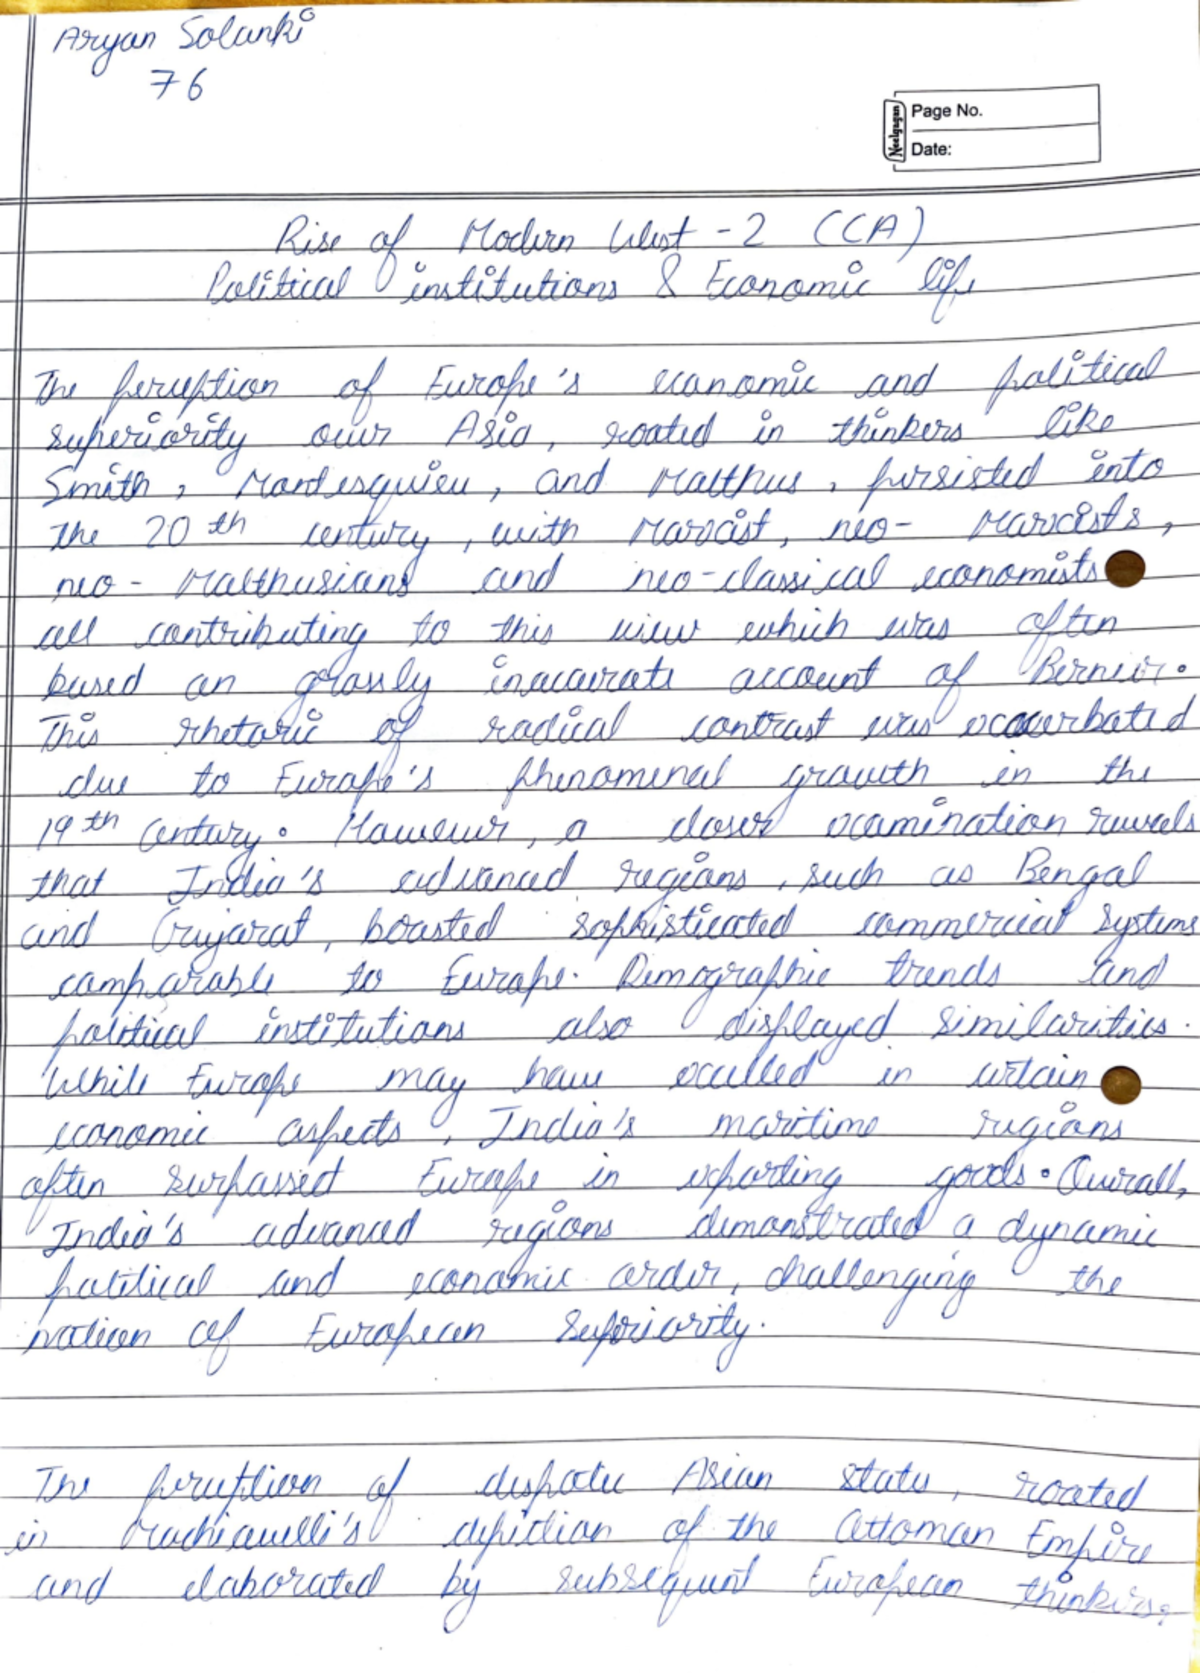 Aryan Solanki
76
Neelgagan
Page No.
Date:
Rise of Modern West - 2 (CCA)
Political institutions & Economic life
The perception of Europe's economic and political
superiority over Asia, rooted in thinkers like
Smith, Montesquieu, and Malthus, persisted into
the 20th century, with Marxist, neo- Marxists,
neo - Malthusians and neo-classical economists
all contributing to this view which was often
based on grossly inaccurate account of Bernier.
This rhetoric of radical contrast was exacerbated
due to Europe's phenomenal growth in the
19th century. However, a closer examination reveals
that India's advanced regions, such as Bengal
and Gujarat, boasted sophisticated commercial systems
comparable to Europe. Demographic trends and
political institutions also displayed similarities.
While Europe may have excelled in certain
economic aspects, India's maritime regions
often surpassed Europe in exporting goods. Overall,
India's advanced regions demonstrated a dynamic
political and economic order, challenging the
notion of European superiority.
The perception of despotic Asian states, rooted
in Machiavelli's depiction of the Ottoman Empire
and elaborated by subsequent European thinkers,